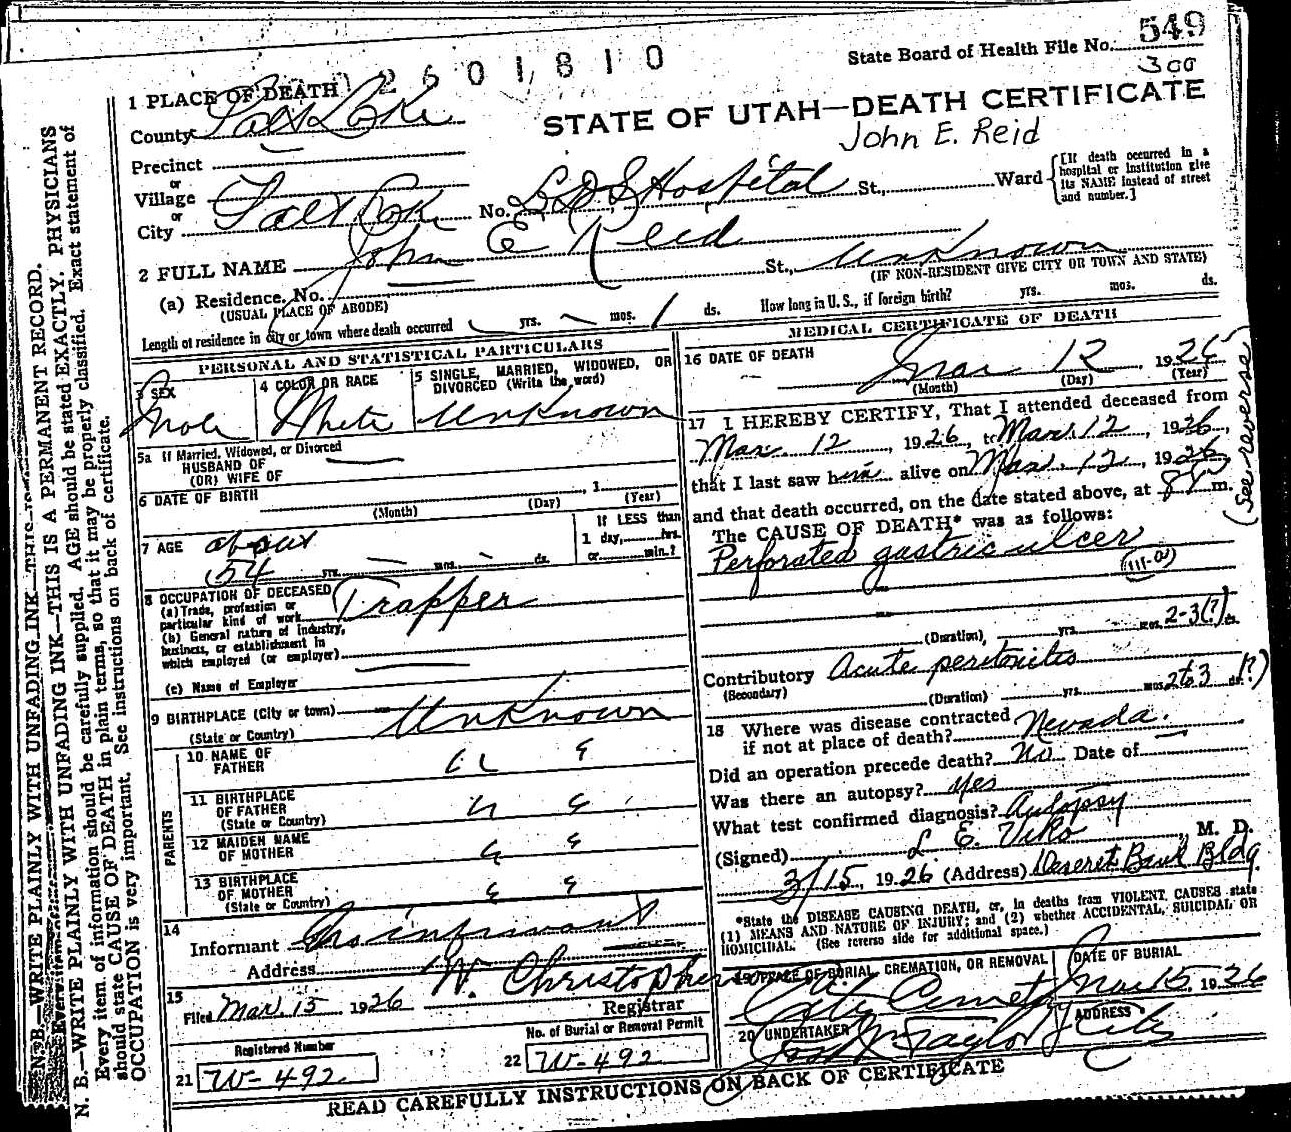 549
State Board of Health File No.
300
2601810
1 PLACE OF DEATH
County Salt Lake
STATE OF UTAH—DEATH CERTIFICATE
John E. Reid
Precinct
or
Village
or
City Salt Lake No. L.D.S Hospital St., Ward
[If death occurred in a
hospital or institution give
its NAME instead of street
and number.]
2 FULL NAME John E Reid
(a) Residence. No. St., Unknown
(USUAL PLACE OF ABODE) (IF NON-RESIDENT GIVE CITY OR TOWN AND STATE)
Length of residence in city or town where death occurred yrs. mos. 1 ds. How long in U. S., if foreign birth? yrs. mos. ds.
PERSONAL AND STATISTICAL PARTICULARS
3 SEX
Male
4 COLOR OR RACE
White
5 SINGLE, MARRIED, WIDOWED, OR
DIVORCED (Write the word)
Unknown
5a If Married, Widowed, or Divorced
HUSBAND OF
(OR) WIFE OF
6 DATE OF BIRTH , 1
(Month) (Day) (Year)
7 AGE about
54 yrs. mos. ds.
If LESS than
1 day, hrs.
or min.?
8 OCCUPATION OF DECEASED
(a) Trade, profession or
particular kind of work Trapper
(b) General nature of industry,
business, or establishment in
which employed (or employer)
(c) Name of Employer
9 BIRTHPLACE (City or town)
(State or Country) Unknown
PARENTS
10 NAME OF
FATHER
11 BIRTHPLACE
OF FATHER
(State or Country)
12 MAIDEN NAME
OF MOTHER
13 BIRTHPLACE
OF MOTHER
(State or Country)
14
Informant No informant
Address
15
Filed Mar. 15 1926 W. Christopher
Registrar
Registered Number
21 W-492
No. of Burial or Removal Permit
22 W-492
MEDICAL CERTIFICATE OF DEATH
16 DATE OF DEATH Mar 12 1926
(Month) (Day) (Year)
17 I HEREBY CERTIFY, That I attended deceased from
Mar. 12, 1926, to Mar. 12, 1926,
that I last saw him alive on Mar. 12, 1926,
and that death occurred, on the date stated above, at m.
(See reverse)
The CAUSE OF DEATH* was as follows:
Perforated gastric ulcer
(111-a)
(Duration), yrs. mos. 2-3(?) ds.
Contributory Acute peritonitis
(Secondary) (Duration) yrs. mos. 2 to 3 ds. (?)
18 Where was disease contracted
if not at place of death? Nevada.
Did an operation precede death? No Date of
Was there an autopsy? Yes
What test confirmed diagnosis? Autopsy
(Signed) L E. Viko, M. D.
3/15, 1926 (Address) Deseret Bank Bldg.
*State the DISEASE CAUSING DEATH, or, in deaths from VIOLENT CAUSES state
(1) MEANS AND NATURE OF INJURY; and (2) whether ACCIDENTAL, SUICIDAL OR
HOMICIDAL. (See reverse side for additional space.)
19 PLACE OF BURIAL, CREMATION, OR REMOVAL
City Cemety
DATE OF BURIAL
Mar 15, 1926
20 UNDERTAKER
Jos W Taylor
ADDRESS
City
READ CAREFULLY INSTRUCTIONS ON BACK OF CERTIFICATE
N. B.—WRITE PLAINLY WITH UNFADING INK—THIS IS A PERMANENT RECORD.
N. B.—WRITE PLAINLY WITH UNFADING INK—THIS IS A PERMANENT RECORD.
Every item of information should be carefully supplied. AGE should be stated EXACTLY. PHYSICIANS
should state CAUSE OF DEATH in plain terms, so that it may be properly classified. Exact statement of
OCCUPATION is very important. See instructions on back of certificate.